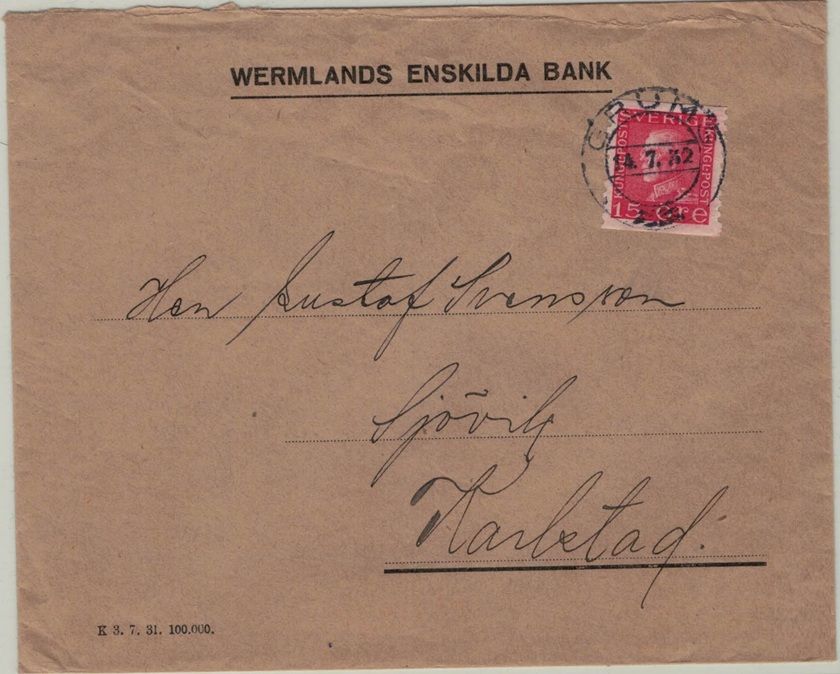 WERMLANDS ENSKILDA BANK
GRUMS
14. 7. 32
SVERIGE
KUNGL·POST
KUNGL·POST
15 öre
Herr Gustaf Svensson
Sjövik
Karlstad.
K 3. 7. 31. 100.000.